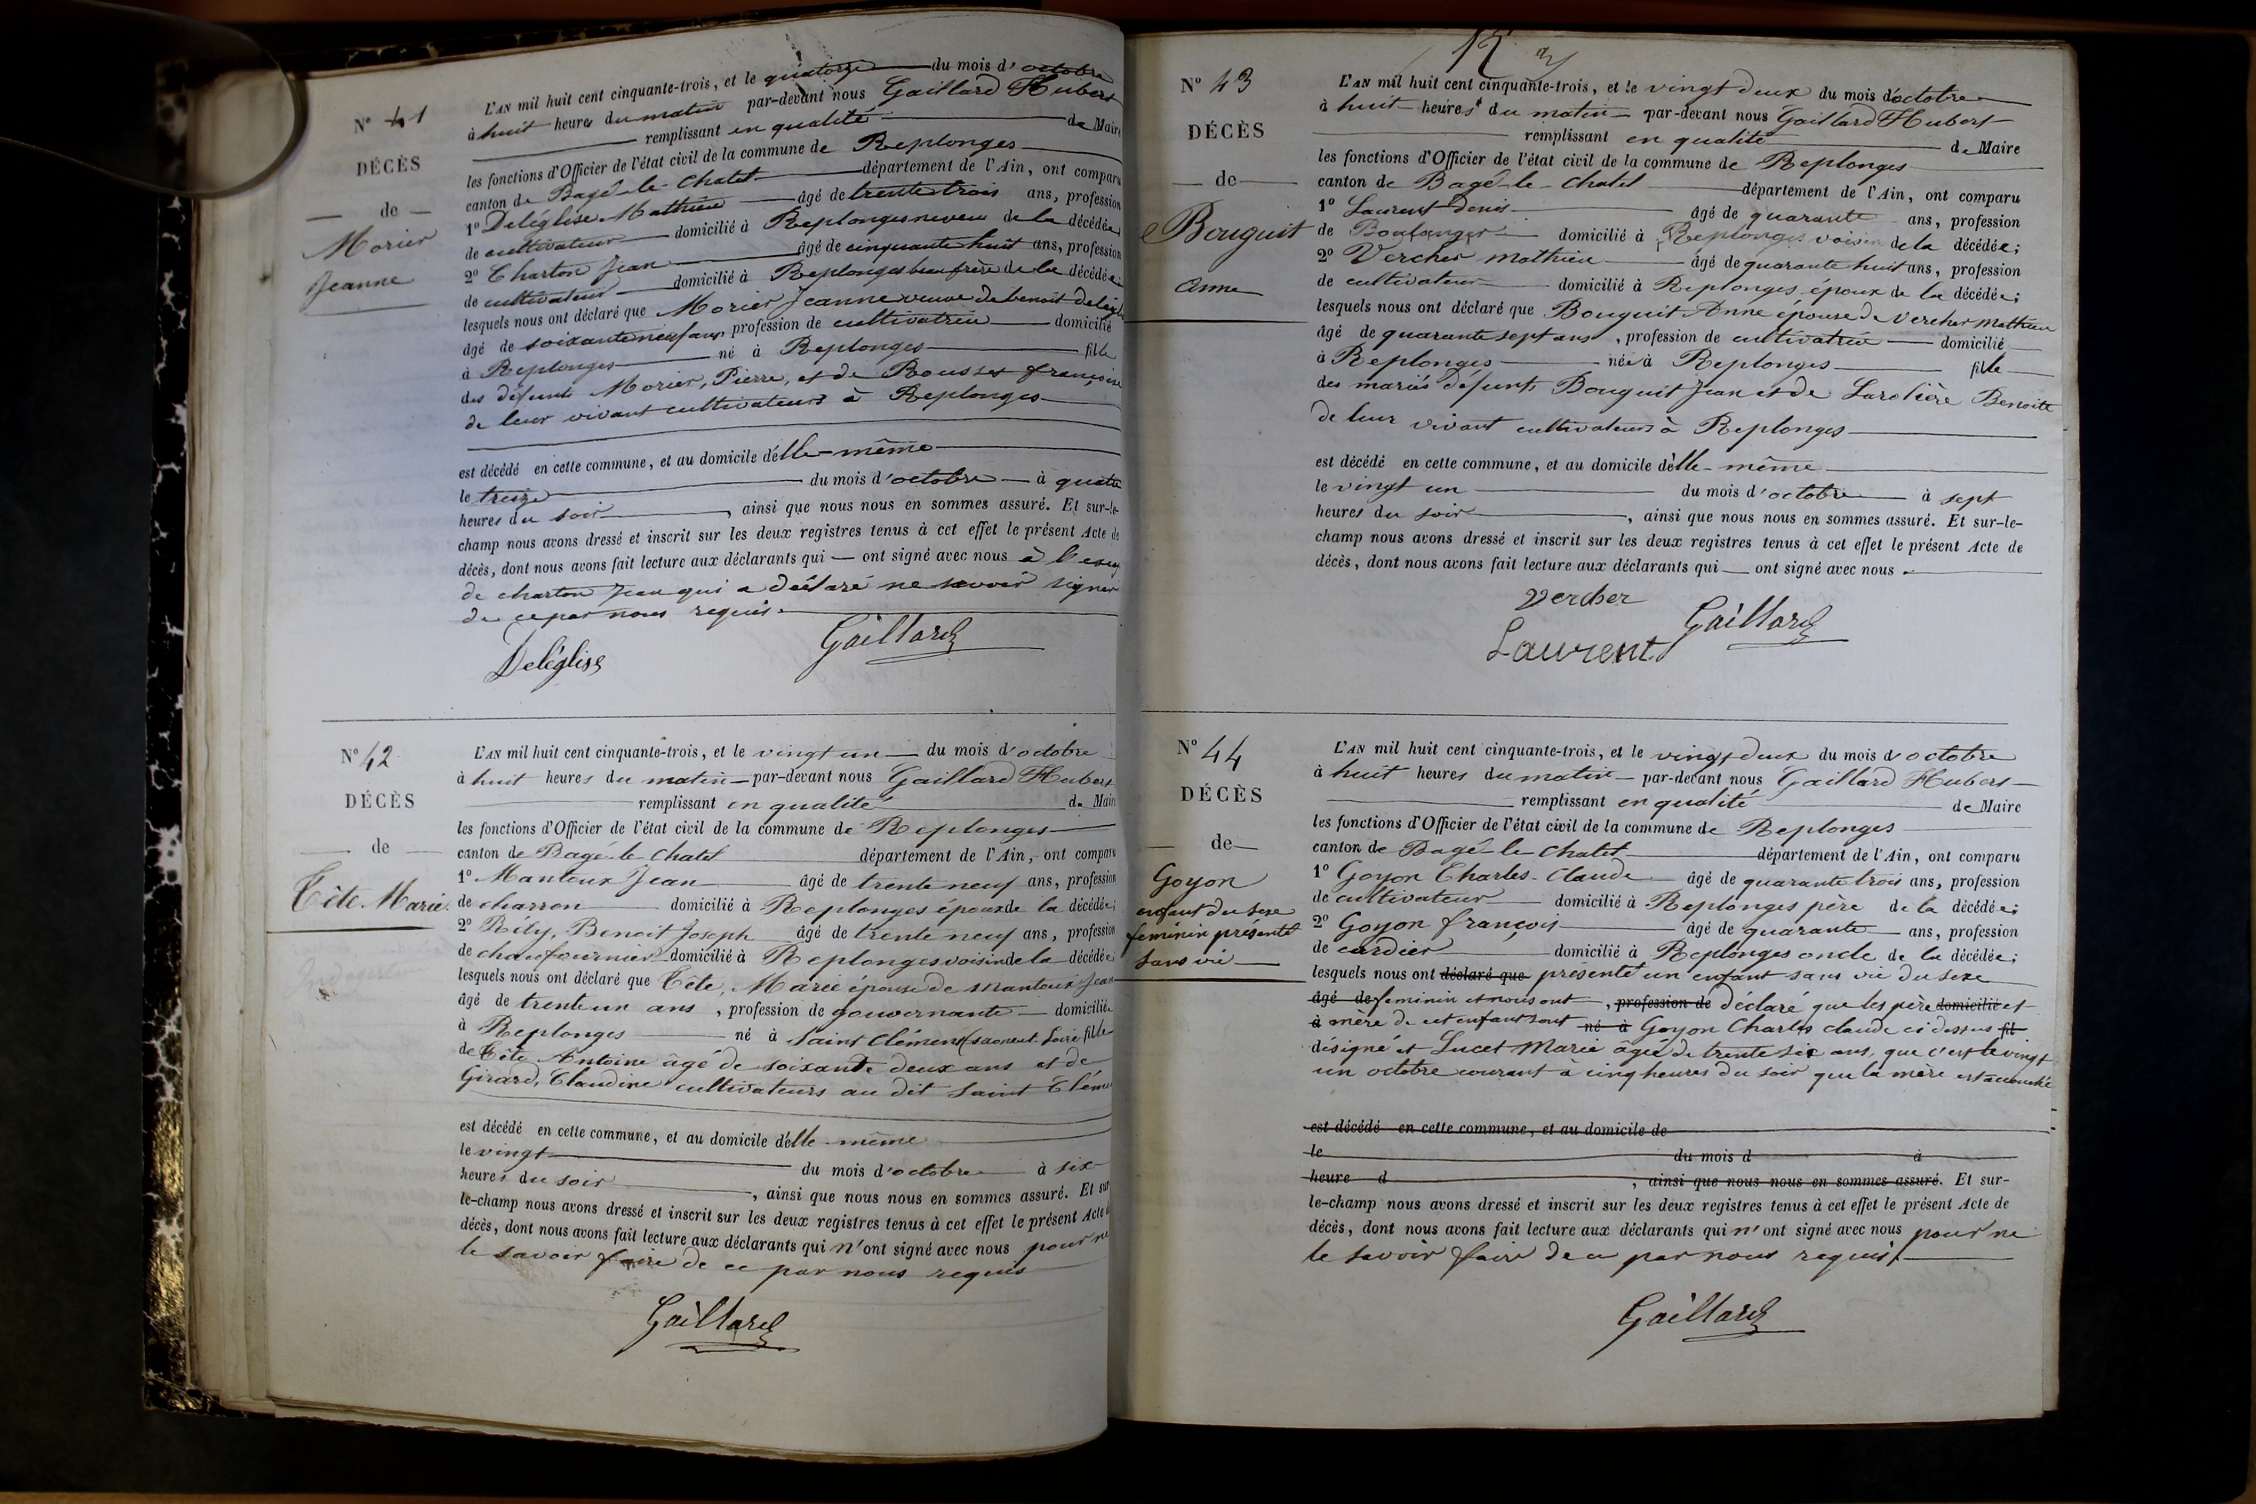 N° 41
DÉCÈS
de
Morier
Jeanne
L'AN mil huit cent cinquante-trois, et le quatorze du mois d'octobre
à huit heures du matin par-devant nous Gaillard Hubert
remplissant en qualité de Maire
les fonctions d'Officier de l'état civil de la commune de Replonges
canton de Bagé-le-Chatel département de l'Ain, ont comparu
1° Deléglise Mathieu âgé de trente trois ans, profession
de cultivateur domicilié à Replonges neveu de la décédée
2° Charton Jean âgé de cinquante huit ans, profession
de cultivateur domicilié à Replonges beau frère de la décédée
lesquels nous ont déclaré que Morier Jeanne veuve de benoit delégl
âgé de soixante neuf ans profession de cultivatrice domicilié
à Replonges né à Replonges fille
des défunts Morier, Pierre, et de Rousset françoise
de leur vivant cultivateurs à Replonges
est décédé en cette commune, et au domicile d'elle-même
le treize du mois d'octobre à quatre
heures du soir, ainsi que nous nous en sommes assuré. Et sur-le-
champ nous avons dressé et inscrit sur les deux registres tenus à cet effet le présent Acte de
décès, dont nous avons fait lecture aux déclarants qui ont signé avec nous à l'excep
de charton Jean qui a déclaré ne savoir signer
de ce par nous requis.
Deléglise Gaillard
N° 42
DÉCÈS
de
Tête Marie
L'AN mil huit cent cinquante-trois, et le vingt un du mois d'octobre
à huit heures du matin par-devant nous Gaillard Hubert
remplissant en qualité de Maire
les fonctions d'Officier de l'état civil de la commune de Replonges
canton de Bagé-le-Chatel département de l'Ain, ont comparu
1° Mantoux Jean âgé de trente neuf ans, profession
de charron domicilié à Replonges époux de la décédée;
2° Rély, Benoit Joseph âgé de trente neuf ans, profession
de chaufournier domicilié à Replonges voisin de la décédée
lesquels nous ont déclaré que Tête, Marie épouse de Mantoux Jean
âgé de trente un ans, profession de gouvernante domiciliée
à Replonges né à Saint Clément (saone et Loire) fille
de Tête Antoine âgé de soixante deux ans et de
Girard, Claudine cultivateurs au dit Saint Cléme
est décédé en cette commune, et au domicile d'elle-même
le vingt du mois d'octobre à six
heures du soir, ainsi que nous nous en sommes assuré. Et sur
le-champ nous avons dressé et inscrit sur les deux registres tenus à cet effet le présent Acte de
décès, dont nous avons fait lecture aux déclarants qui n'ont signé avec nous pour ne
le savoir faire de ce par nous requis
Gaillard
N° 43
DÉCÈS
de
Bouguit
anne
L'AN mil huit cent cinquante-trois, et le vingt deux du mois d'octobre
à huit heures du matin par-devant nous Gaillard Hubert
remplissant en qualité de Maire
les fonctions d'Officier de l'état civil de la commune de Replonges
canton de Bagé-le-Chatel département de l'Ain, ont comparu
1° Laurent Denis âgé de quarante ans, profession
de Boulanger domicilié à Replonges voisin de la décédée;
2° Vercher Mathieu âgé de quarante huit ans, profession
de cultivateur domicilié à Replonges époux de la décédée;
lesquels nous ont déclaré que Bouguit Anne épouse de Vercher Mathieu
âgé de quarante sept ans, profession de cultivatrice domicilié
à Replonges née à Replonges fille
des mariés défunts Bouguit Jean et de Larolière Benoite
de leur vivant cultivateurs à Replonges
est décédé en cette commune, et au domicile d'elle-même
le vingt un du mois d'octobre à sept
heures du soir, ainsi que nous nous en sommes assuré. Et sur-le-
champ nous avons dressé et inscrit sur les deux registres tenus à cet effet le présent Acte de
décès, dont nous avons fait lecture aux déclarants qui ont signé avec nous.
Vercher
Laurent Gaillard
N° 44
DÉCÈS
de
Goyon
enfant du sexe
feminin présenté
sans vie
L'AN mil huit cent cinquante-trois, et le vingt deux du mois d'octobre
à huit heures du matin par-devant nous Gaillard Hubert
remplissant en qualité de Maire
les fonctions d'Officier de l'état civil de la commune de Replonges
canton de Bagé-le-Chatel département de l'Ain, ont comparu
1° Goyon Charles-Claude âgé de quarante trois ans, profession
de cultivateur domicilié à Replonges père de la décédée;
2° Goyon françois âgé de quarante ans, profession
de cardier domicilié à Replonges oncle de la décédée;
lesquels nous ont déclaré que présenté un enfant sans vie du sexe
âgé de feminin et nous ont, profession de déclaré que les père domicilié et
à mère de cet enfant sont né à Goyon Charles claude ci dessus fil
désigné et Lucet Marie âgée de trente six ans, que c'est le vingt
un octobre courant à cinq heures du soir que la mère est accouchée
est décédé en cette commune, et au domicile de
le du mois d à
heure d, ainsi que nous nous en sommes assuré. Et sur-
le-champ nous avons dressé et inscrit sur les deux registres tenus à cet effet le présent Acte de
décès, dont nous avons fait lecture aux déclarants qui n'ont signé avec nous pour ne
le savoir faire de ce par nous requis.
Gaillard